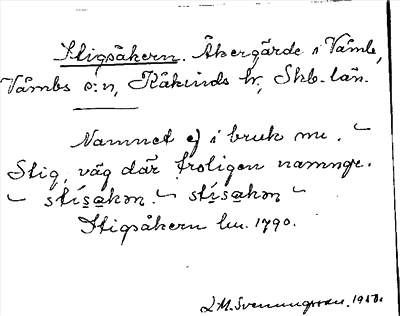 Stigsåkern. Åkergärde i Våmb,
Våmbs s:n, Kåkinds hr, Skb. län.
Namnet ej i bruk nu.
Stig, väg där troligen namnge.
stísakən. stísakən
Stigsåkern lm. 1790.
L M. Svenungsson. 1950.